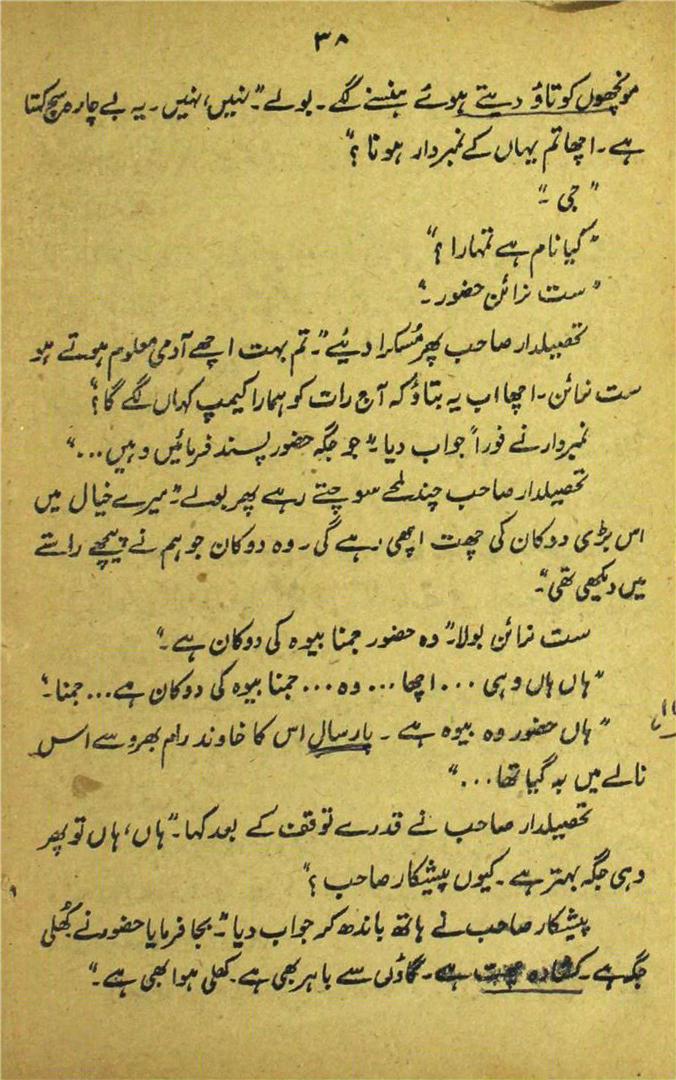 ۳۸
مونچھوں کو تاؤ دیتے ہوئے ہنسنے لگے۔ بولے "۔ نہیں، نہیں۔ یہ بے چارہ سچ کہتا
ہے۔ اچھا تم یہاں کے نمبردار ہو نا ؟"
"جی ۔"
"کیا نام ہے تمہارا ؟"
"ست نرائن حضور۔"
تحصیلدار صاحب پھر مُسکرا دیئے "۔ تم بہت اچھے آدمی معلوم ہوتے ہو
ست نرائن۔ اچھا اب یہ بتاؤ کہ آج رات کو ہمارا کیمپ کہاں لگے گا؟"
نمبردار نے فوراً جواب دیا۔" جو جگہ حضور پسند فرمائیں وہیں..."
تحصیلدار صاحب چند لمحے سوچتے رہے پھر بولے "۔ میرے خیال میں
اس بڑی دوکان کی چھت اچھی رہے گی۔ وہ دوکان جو ہم نے پیچھے راستے
میں دیکھی تھی"۔
ست نرائن بولا۔" وہ حضور جمنا بیوہ کی دوکان ہے۔"
"ہاں ہاں وہی ... اچھا ... وہ ... جمنا بیوہ کی دوکان ہے... جمنا۔"
"ہاں حضور وہ بیوہ ہے ۔ پارسال اس کا خاوند رام بھروسے اس
نالے میں بہ گیا تھا..."
تحصیلدار صاحب نے قدرے توقف کے بعد کہا۔" ہاں، ہاں تو پھر
وہی جگہ بہتر ہے۔ کیوں پیشکار صاحب ؟"
پیشکار صاحب نے ہاتھ باندھ کر جواب دیا "۔ بجا فرمایا حضور نے کھُلی
جگہ ہے۔ کشادہ چھت ہے۔ گاؤں سے باہر بھی ہے۔ کھلی ہوا بھی ہے۔"